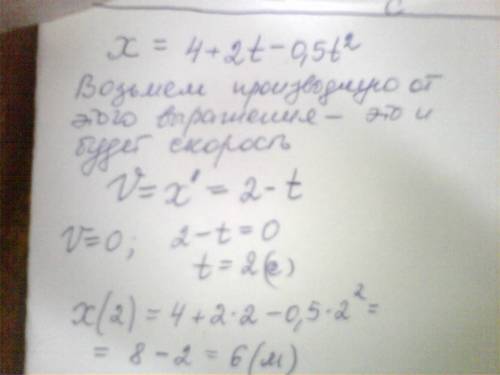 c
x = 4+2t-0,5t²
Возьмем производную от
этого выражения - это и
будет скорость
V=x' = 2-t
V=0; 2-t=0
t=2(с)
x(2) = 4+2·2-0,5·2² =
= 8-2 = 6(м)